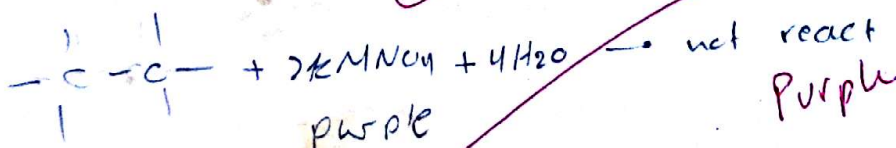 -C-C- + 2KMNO4 + 4H2O → not react
purple Purple